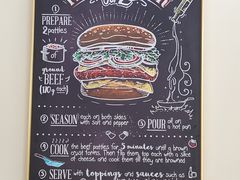 ① PREPARE
2 patties
of
ground
BEEF
(170g each)
② SEASON each on both sides
with salt and pepper
③ POUR oil on
a hot pan
④ COOK the beef patties for 3 minutes until a brown
crust forms. Then flip them, top each with a slice
of cheese, and cook them till they are browned
⑤ SERVE with toppings and sauces such as